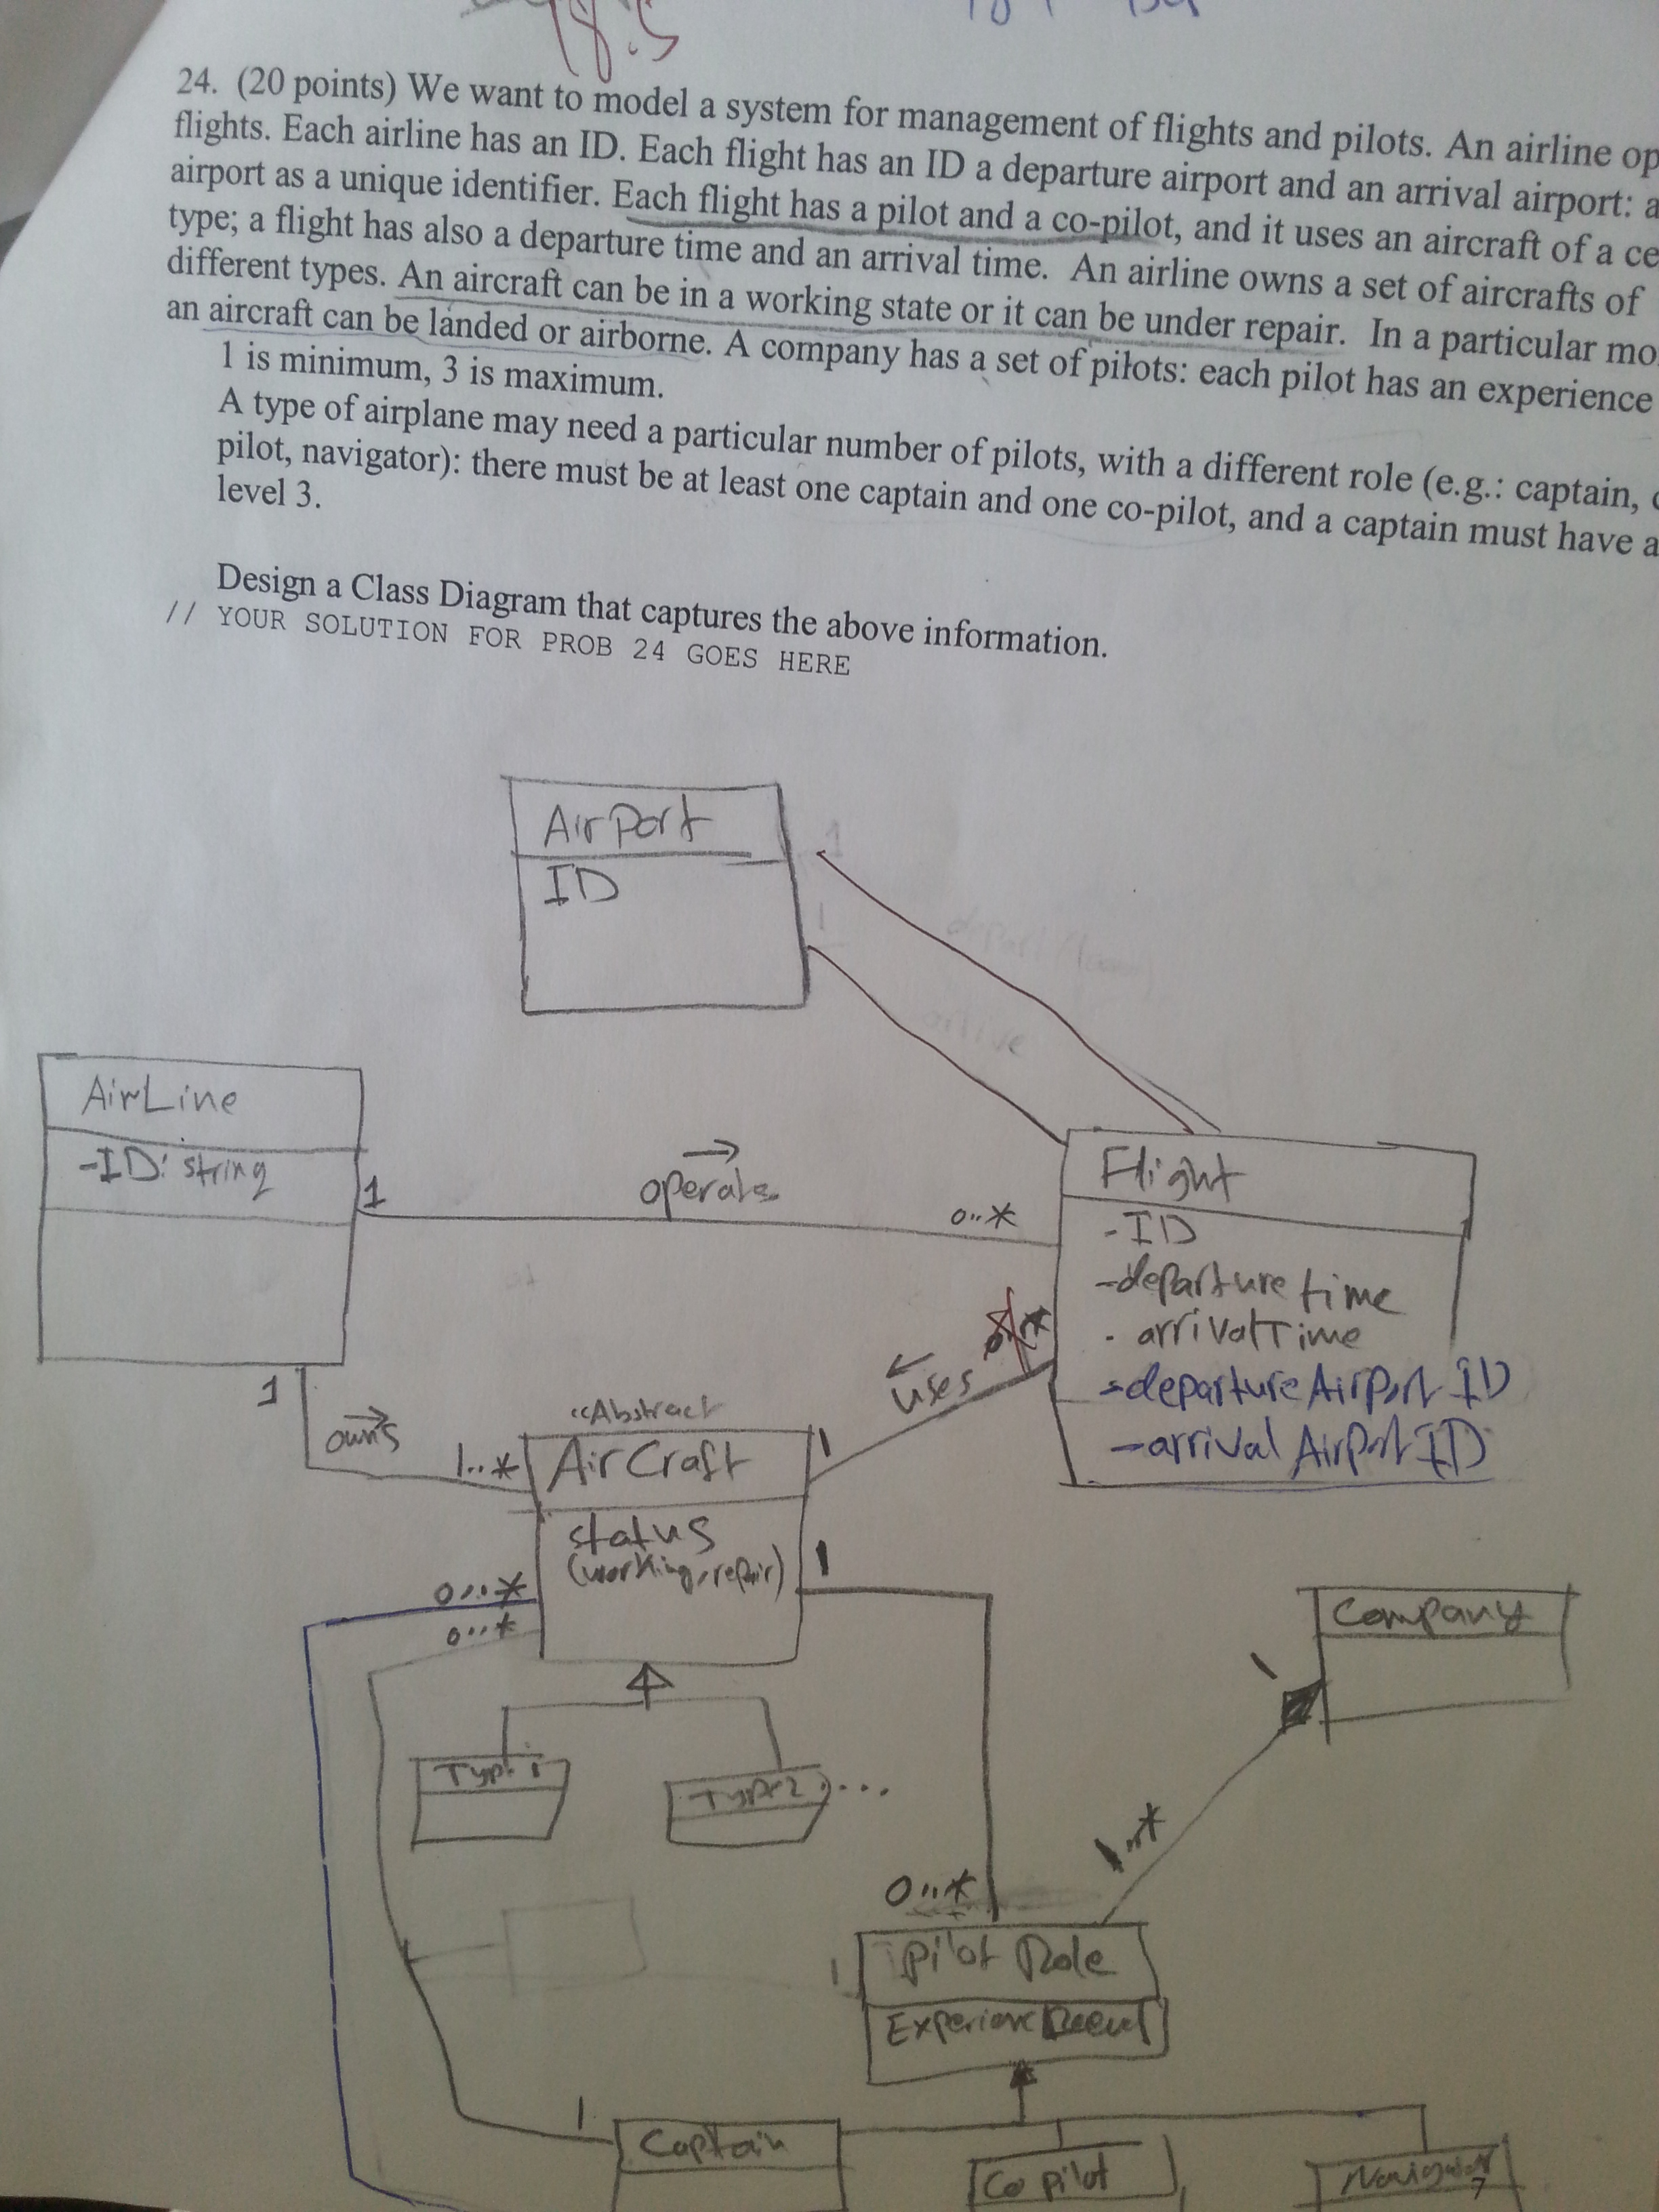 18.5
24. (20 points) We want to model a system for management of flights and pilots. An airline op
flights. Each airline has an ID. Each flight has an ID a departure airport and an arrival airport: a
airport as a unique identifier. Each flight has a pilot and a co-pilot, and it uses an aircraft of a ce
type; a flight has also a departure time and an arrival time. An airline owns a set of aircrafts of
different types. An aircraft can be in a working state or it can be under repair. In a particular mo
an aircraft can be landed or airborne. A company has a set of pilots: each pilot has an experience
1 is minimum, 3 is maximum.
A type of airplane may need a particular number of pilots, with a different role (e.g.: captain, c
pilot, navigator): there must be at least one captain and one co-pilot, and a captain must have a
level 3.
Design a Class Diagram that captures the above information.
// YOUR SOLUTION FOR PROB 24 GOES HERE
AirPort
1
ID
1
arrive
AirLine
-ID: string
1
operate
0..*
Flight
-ID
-departure time
- arrivalTime
-departureAirport ID
-arrival AirportID
uses
1
owns
1..*
<<Abstract
AirCraft
1
status
(working, repair)
1
0...*
0...*
Type 1
Type 2 ...
Company
1
1..*
0..*
Pilot Role
1
Experience
1
Captain
Co pilot
Navigator
7